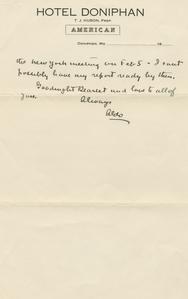 HOTEL DONIPHAN
T. J. HUSON, PROP.
AMERICAN
DONIPHAN, MO. 19
the New York meeting on Feb 5 - I can't
possibly have my report ready by then.
Goodnight Dearest and love to all of
you.
Always
Aldo